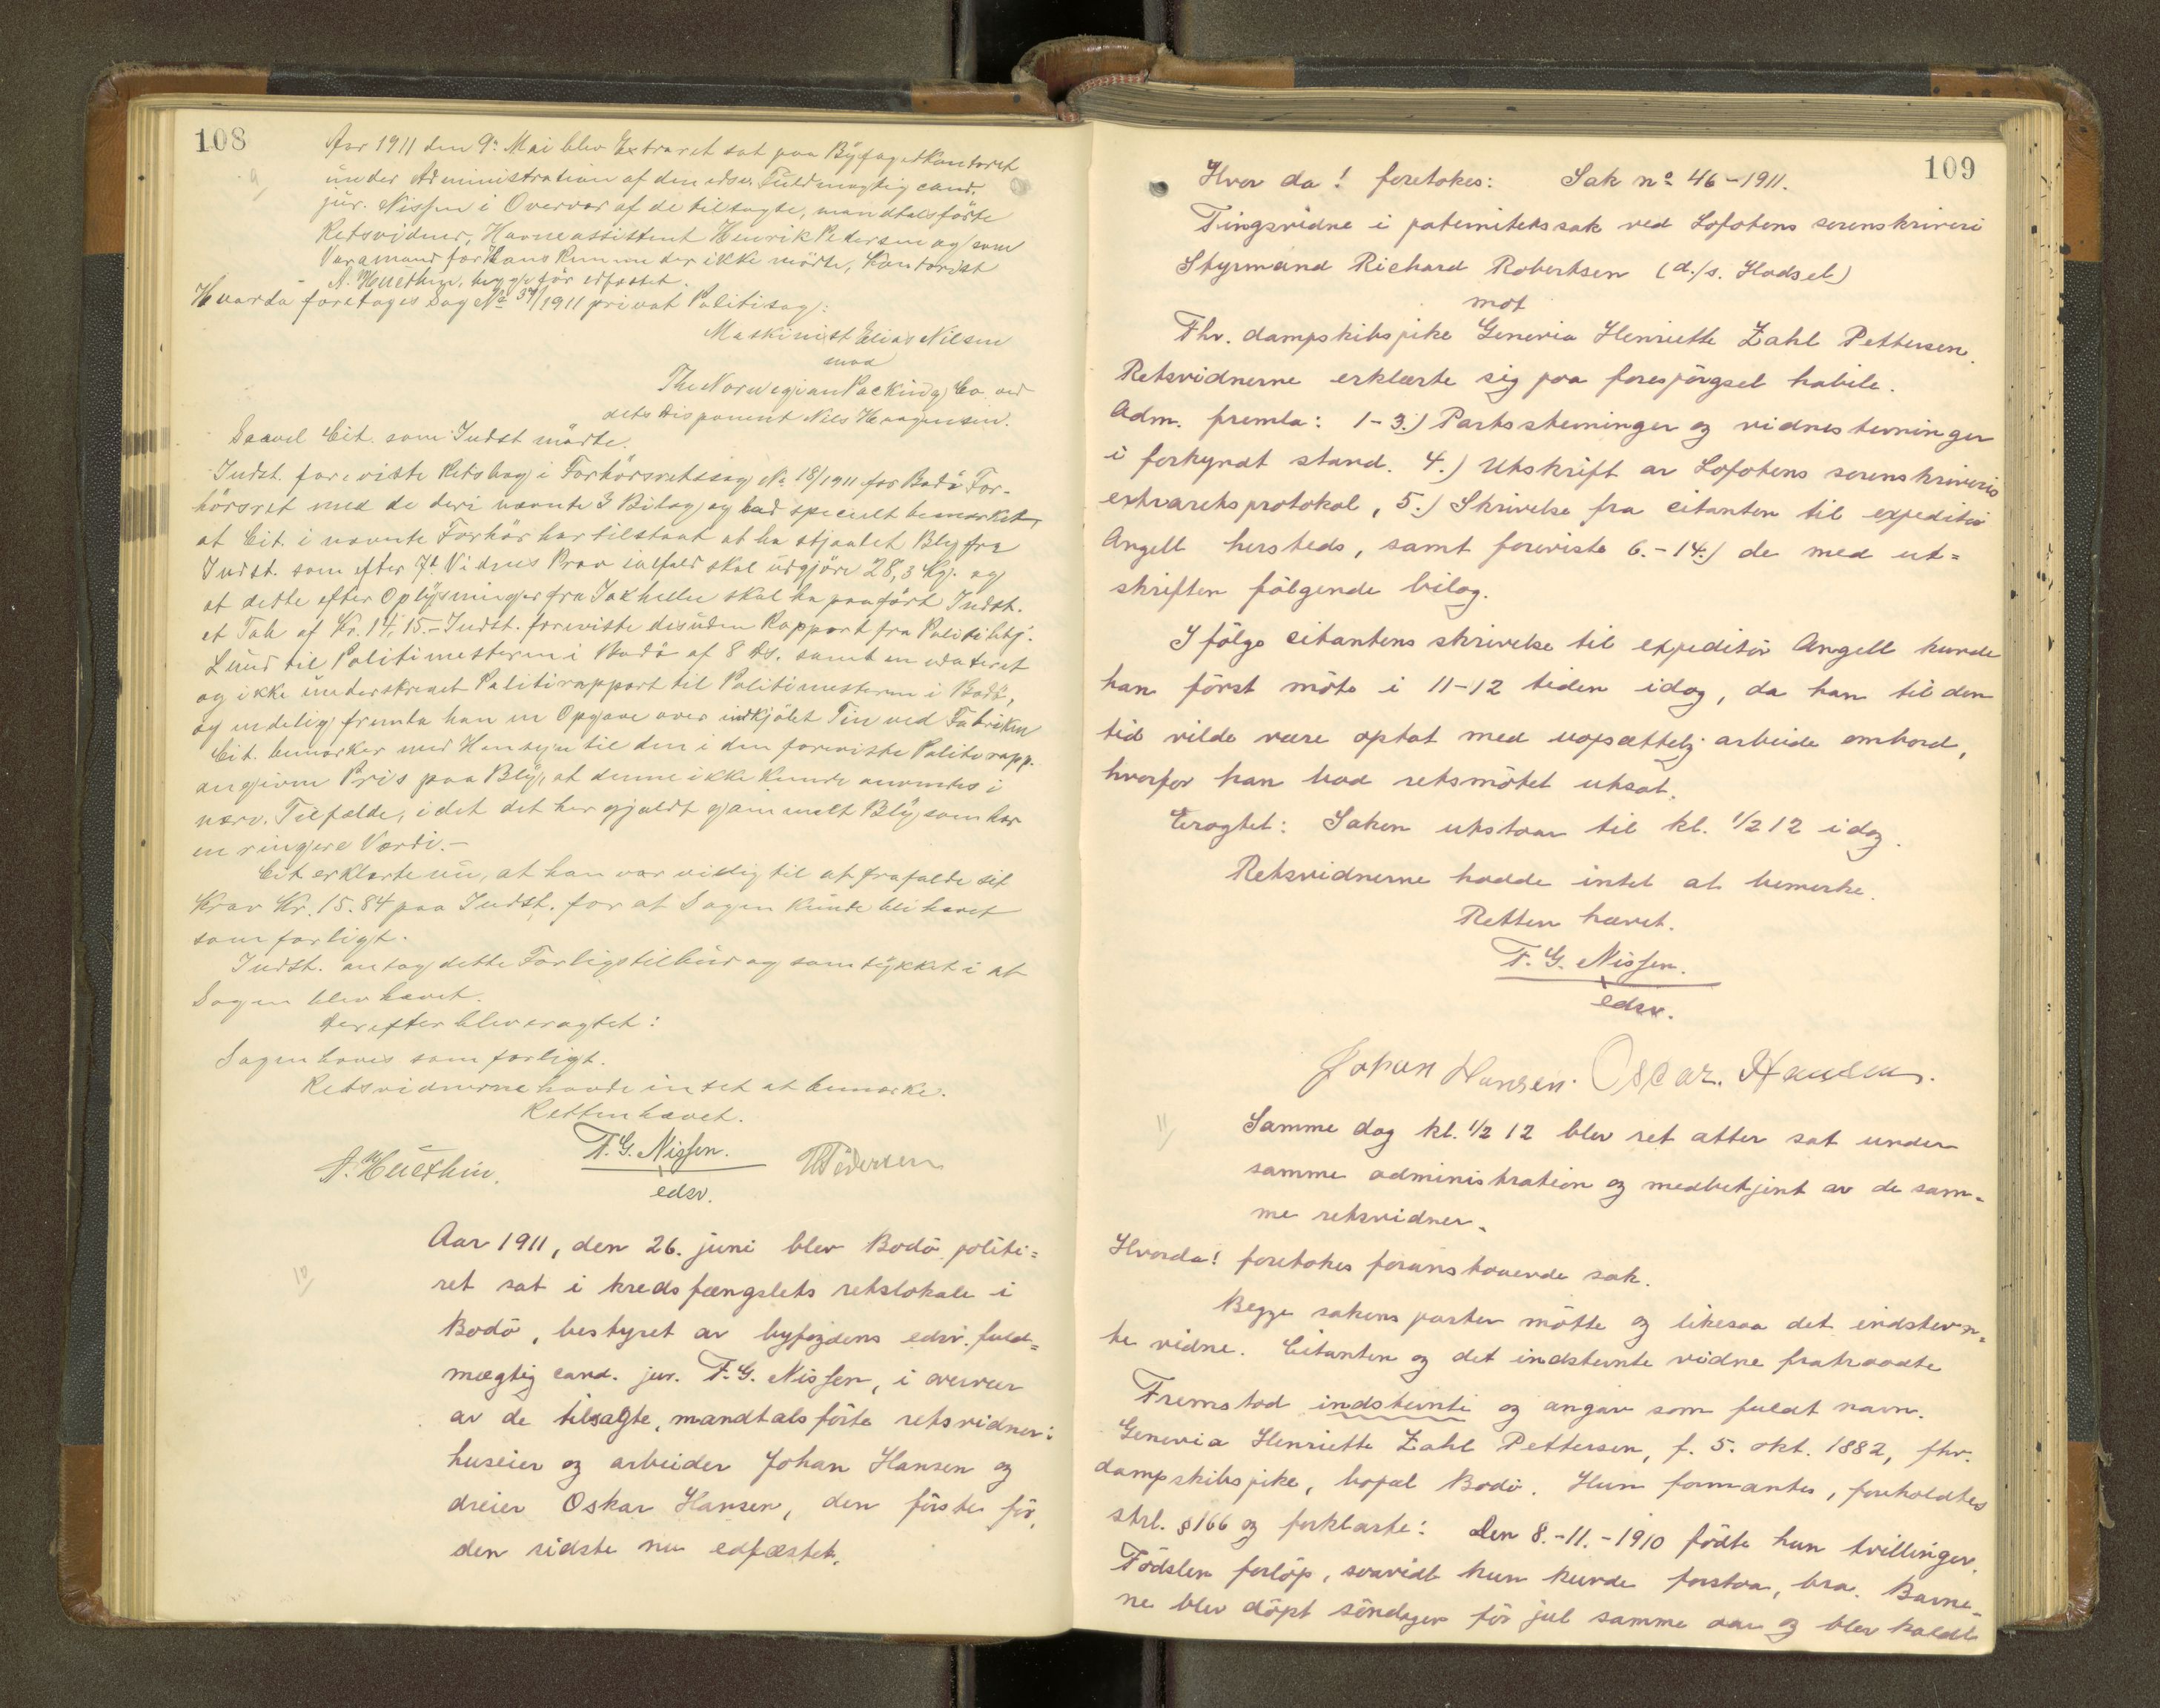 108
Aar 1911 den 9. Mai blev Extraret sat paa Byfogedkontoret
9/
under Administration af den edsv. Fuldmægtig cand.
jur. Nissen i Overvær af de tilsagte, mandtalsførte
Retsvidner, Havneassistent Henrik Pedersen og som
Varamand for Hans Rem der ikke mødte, Kontorist
A. Huethin, begge før edfæstet.
Hvorda foretoges Sag No 37/1911 privat Politisag:
Maskinist Elias Nilsen
mod
The Norwegian Packing Co ved
dets Disponent Nils Haagensen.
Saavel Cit. som Indst mødte.
Indst. foreviste Retsbog i Forhørsretssag No 18/1911 for Bodö For-
hörsret med de deri nævnte 3 Bilag og bad specielt bemærket,
at Cit. i nævnte Forhör har tilstaat at ha stjaalet Bly fra
Indst. som efter 7d Vidnes Prov ialfald skal udgjöre 28,3 Kg. og
at dette efter Oplysninger fra Jakhelln skal ha paaført Indst.
et Tab af Kr. 14,15.- Indst. foreviste desuden Rapport fra Politibtj.
Lund til Politimesteren i Bodö af 8 ds. samt en udateret
og ikke underskrevet Politirapport til Politimesteren i Bodö,
og endelig fremla han en Opgave over indkjöbt Tin ved Fabriken
Cit. bemærker med Hensyn til den i den foreviste Politirapp.
angivne Pris paa Bly, at denne ikke kunde anvendes i
nærv. Tilfælde, idet det her gjaldt gammelt Bly, som har
en ringere Værdi.-
Cit. erklærte nu, at han var villig til at frafalde sit
Krav Kr. 15.84 paa Indst. for at Sagen kunde bli hævet
som forligt.
Indst. antog dette Forligstilbud og samtykket i at
Sagen blev hævet.
Derefter blev eragtet:
Sagen hæves som forligt.
Retsvidnerne havde intet at bemærke.
Retten hævet.
F. G. Nissen.
A. Huethin. HPedersen
edsv.
Aar 1911, den 26. juni blev Bodö politi=
10/
ret sat i kredsfængslets retslokale i
Bodö, bestyret av byfogdens edsv. fuld=
mægtig cand. jur. F. G. Nissen, i overvær
av de tilsagte, mandtalsförte retsvidner:
huseier og arbeider Johan Hansen og
dreier Oskar Hansen, den förste för,
den sidste nu edfæstet.
109
Hvor da! foretokes: Sak no 46-1911.
Tingsvidne i paternitetssak ved Lofotens sorenskriveri
Styrmand Richard Robertsen (d./s. Hadsel)
mot
Fhv. dampskibspike Generia Henriette Zahl Pettersen.
Retsvidnerne erklærte sig paa forespörgsel habile.
Adm. fremla: 1-3.) Partsstevninger og vidnestevninger
i forkyndt stand. 4.) Utskrift av Lofotens sorenskriveris
extraretsprotokol, 5.) Skrivelse fra citanten til expeditör
Angell hersteds, samt foreviste 6.-14.) de med ut=
skriften fölgende bilag.
Ifölge citantens skrivelse til expeditör Angell kunde
han först möte i 11-12 tiden idag, da han til den
tid vilde være optat med uopsættelig arbeide ombord,
hvorfor han bad retsmötet utsat.
Eragtet: Saken utstaar til kl. 1/2 12 idag.
Retsvidnerne hadde intet at bemerke.
Retten hævet.
F. G. Nissen.
edsv.
Johan Hansen. Oscar. Hansen.
Samme dag kl. 1/2 12 blev ret atter sat under
11/
samme administration og medbetjent av de sam-
me retsvidner.
Hvorda! foretokes foranstaaende sak.
Begge sakens parter mötte og likesaa det indstevn=
te vidne. Citanten og det indstevnte vidne fratraadte
Fremstod indstevnte og angav som fuldt navn.
Generia Henriette Zahl Pettersen, f. 5. okt. 1882, fhv.
dampskibspike, bopæl Bodö. Hun formantes, foreholdtes
strl. § 166 og forklarte: Den 8.-11.-1910 födte hun tvillinger.
Födslen forlöp, saavidt hun kunde forstaa, bra. Barne-
ne blev döpt söndagen för jul samme aar og blev kaldt